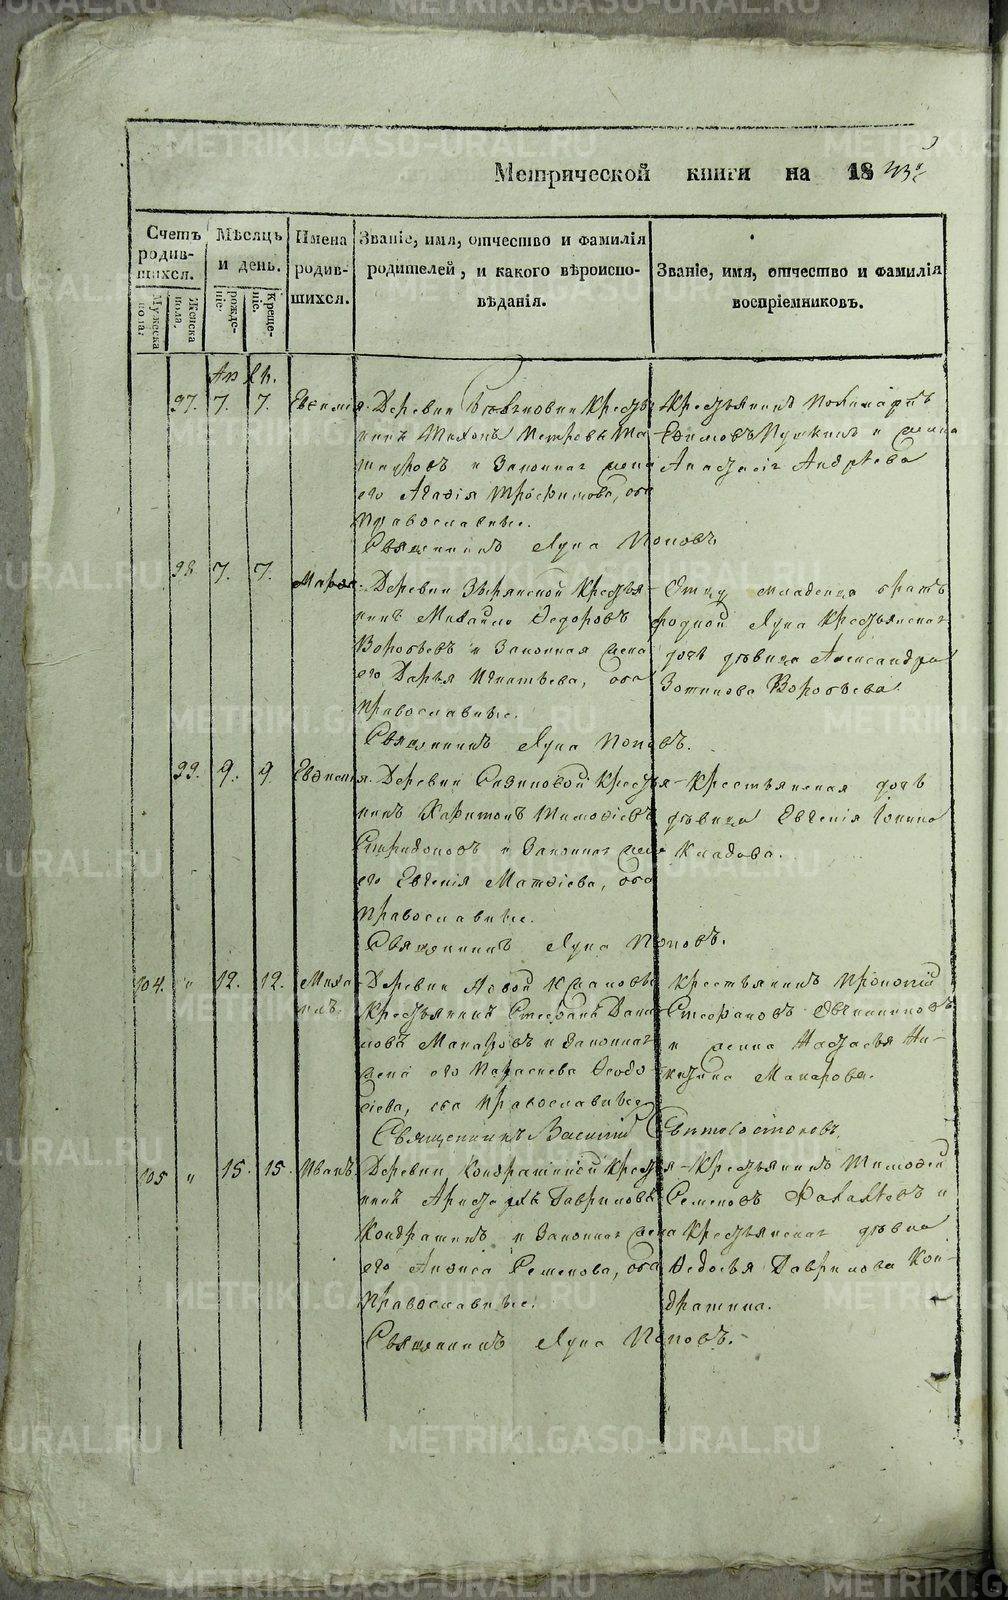 Метрической книги на 1843
Счетъ родив-шихся.
Мужеска пола.
Женска пола.
Мѣсяцъ и день.
рожде-ніе.
Креще-ніе.
Имена родив-шихся.
Званіе, имя, отчество и фамилія
родителей, и какого вѣроиспо-
вѣданія.
Званіе, имя, отчество и фамилія
воспріемниковъ.
97. 7. 7.
Деревни Крестья-
нинъ Тихонъ Петровъ
и Законная жена
его Агафія Трофимова, оба
Православные.
Священникъ Лука Поповъ
Крестьянинъ
Ефимовъ Пушкинъ и жена
Анастасія Андреева
98. 7. 7.
Марѳа.
Деревни Зырянской Крестья-
нинъ Михайло Ѳедоровъ
Воробьевъ и Законная жена
его Дарья Игнатьева, оба
Православные.
Священникъ Лука Поповъ.
Отцу младенца братъ
родной Лука Крестьянская
дочь дѣвица Александра
Зотикова Воробьева.
99. 9. 9
Деревни Крестья-
нинъ Харитонъ Тимоѳіевъ
Спиридоновъ и Законная жена
его Евгенія Матѳіева, оба
Православные.
Священникъ Лука Поповъ.
Крестьянская дочь
дѣвица Евгенія Іонина
Кладова.
104. " 12. 12.
Миха-
илъ.
Деревни Новой
Крестьянинъ Стефанъ Дани-
ловъ Макаровъ и законная
жена его Параскева Ѳеодо-
сіева, оба Православные
Священникъ Василій
Крестьянинъ Прокопій
Стефановъ Овчинниковъ
и жена Настасья Ни-
китина Макарова.
105 " 15. 15.
Иванъ.
Деревни Кондратиной Крестья-
нинъ Аристархъ Гавриловъ
Кондратинъ и Законная жена
его Анфиса Семенова, оба
Православные.
Священникъ Лука Поповъ.
Крестьянинъ Тимофей
Семеновъ и
Крестьянская дѣвка
Ѳедосья Гаврилова Кон-
дратина.
METRIKI.GASO-URAL.RU